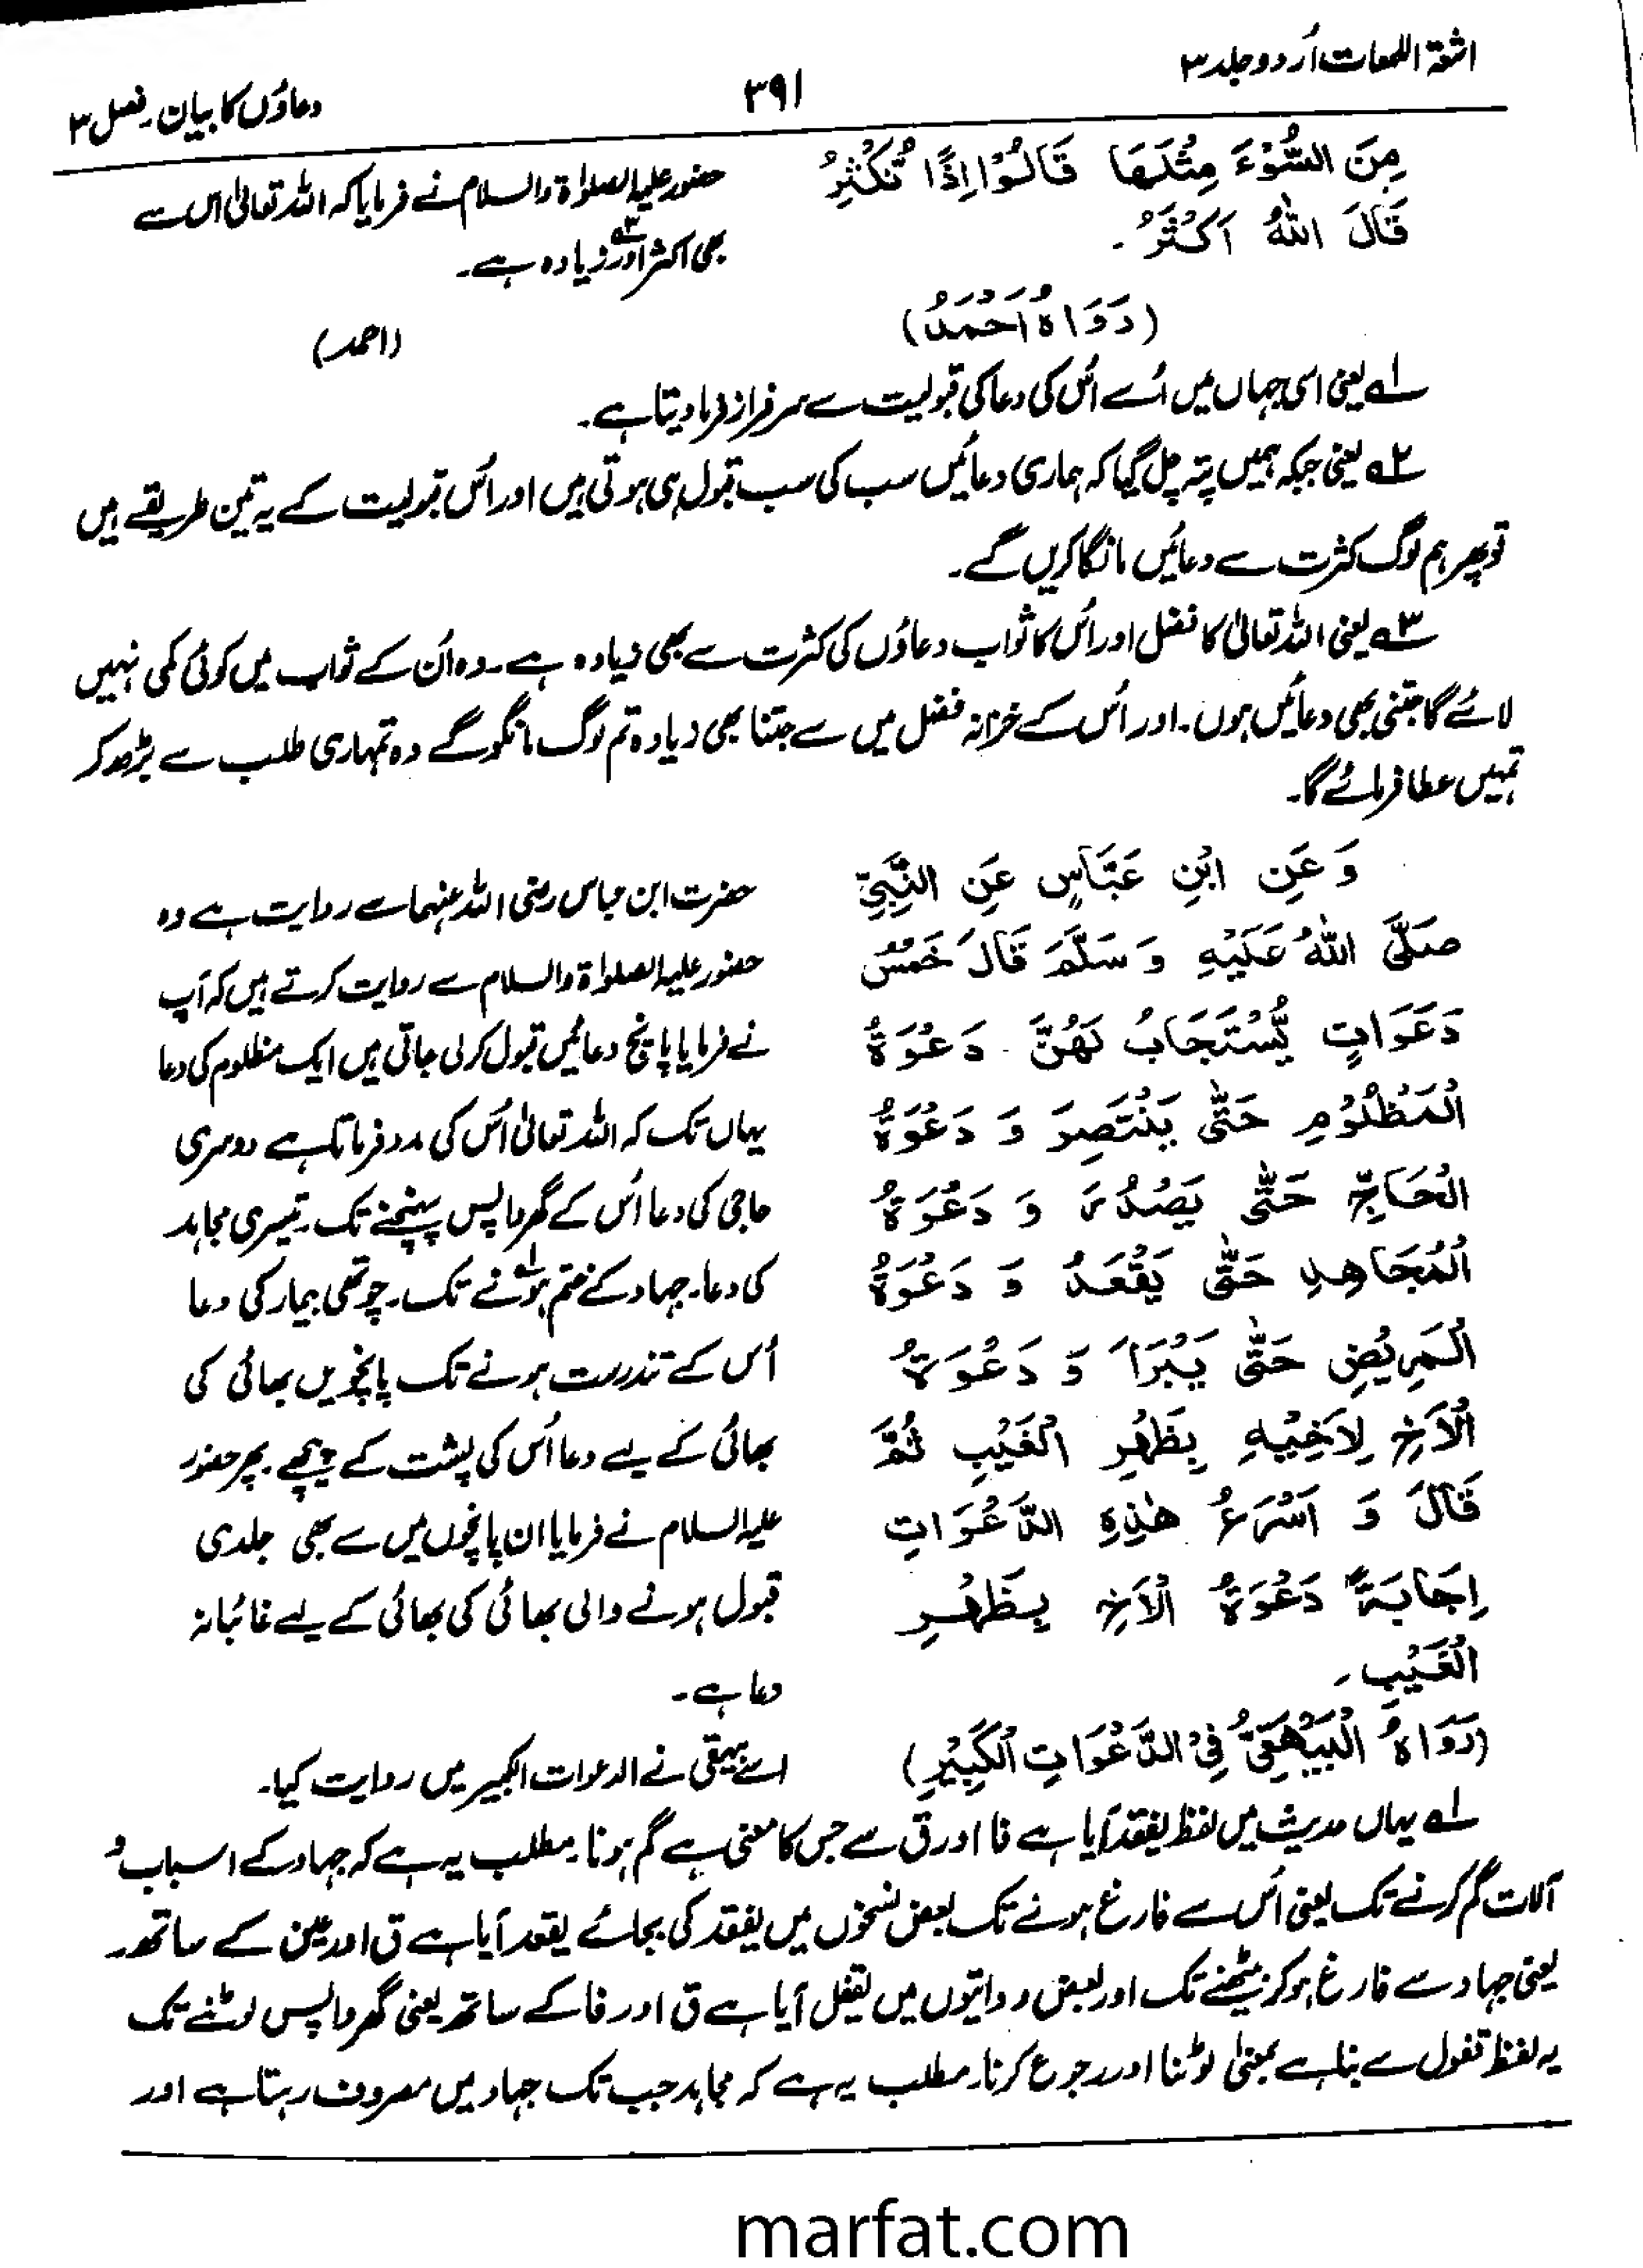 اشعۃ اللمعات اُردو جلد ۳
۳۹۱
دعاؤں کا بیان ۔ فصل ۳
مِنَ السُّوْءِ مِثْلَهَا قَالُوْا اِذًا تُكْثِرُ
قَالَ اللّٰهُ اَكْثَرُ ۔
(رَوَاهُ اَحْمَدُ)
حضور علیہ الصلوٰۃ والسلام نے فرمایا کہ اللہ تعالیٰ اس سے
بھی اکثر اور۳ زیادہ ہے۔
(احمد)
۱ یعنی اسی جہاں میں اُسے اُس کی دعا کی قبولیت سے سرفراز فرما دیتا ہے۔
۲ یعنی جبکہ ہمیں پتہ چل گیا کہ ہماری دعائیں سب کی سب قبول ہی ہوتی ہیں اور اُس قبولیت کے یہ تین طریقے ہیں
تو پھر ہم لوگ کثرت سے دعائیں مانگا کریں گے۔
۳ یعنی اللہ تعالیٰ کا فضل اور اُس کا ثواب دعاؤں کی کثرت سے بھی زیادہ ہے۔ وہ اُن کے ثواب میں کوئی کمی نہیں
لائے گا جتنی بھی دعائیں ہوں۔ اور اُس کے خزانہ فضل میں سے جتنا بھی زیادہ تم لوگ مانگو گے وہ تمہاری طلب سے بڑھ کر
تمہیں عطا فرمائے گا۔
وَعَنِ ابْنِ عَبَّاسٍ عَنِ النَّبِيِّ
صَلَّى اللّٰهُ عَلَيْهِ وَسَلَّمَ قَالَ خَمْسُ
دَعَوَاتٍ يُّسْتَجَابُ لَهُنَّ دَعْوَةُ
الْمَظْلُوْمِ حَتّٰى يَنْتَصِرَ وَ دَعْوَةُ
الْحَاجِّ حَتّٰى يَصْدُرَ وَ دَعْوَةُ
الْمُجَاهِدِ حَتّٰى يَقْعُدَ وَ دَعْوَةُ
الْمَرِيْضِ حَتّٰى يَبْرَاَ وَ دَعْوَةُ
الْاَخِ لِاَخِيْهِ بِظَهْرِ الْغَيْبِ ثُمَّ
قَالَ وَ اَسْرَعُ هٰذِهِ الدَّعْوَاتِ
اِجَابَةً دَعْوَةُ الْاَخِ بِظَهْرِ
الْغَيْبِ ۔
(رَوَاهُ الْبَيْهَقِيُّ فِي الدَّعْوَاتِ الْكَبِيْرِ)
حضرت ابن عباس رضی اللہ عنہما سے روایت ہے وہ
حضور علیہ الصلوٰۃ والسلام سے روایت کرتے ہیں کہ آپ
نے فرمایا پانچ دعائیں قبول کر لی جاتی ہیں ایک مظلوم کی دعا
یہاں تک کہ اللہ تعالیٰ اُس کی مدد فرماتا ہے دوسری
حاجی کی دعا اُس کے گھر واپس پہنچنے تک۔ تیسری مجاہد
کی دعا۔ جہاد کے ختم ہونے۱ تک۔ چوتھی بیمار کی دعا
اُس کے تندرست ہونے تک پانچویں بھائی کی
بھائی کے لیے دعا اُس کی پشت کے پیچھے۔ پھر حضور
علیہ السلام نے فرمایا ان پانچوں میں سے بھی جلدی
قبول ہونے والی بھائی کی بھائی کے لیے غائبانہ
دعا ہے۔
اسے بیہقی نے الدعوات الکبیر میں روایت کیا۔
۱ یہاں حدیث میں لفظ یفقد آیا ہے فا اور ق سے جس کا معنی ہے گم ہونا۔ مطلب یہ ہے کہ جہاد کے اسباب و
آلات گم کرنے تک یعنی اُس سے فارغ ہونے تک بعض نسخوں میں یفقد کی بجائے یقعد آیا ہے ق اور عین کے ساتھ۔
یعنی جہاد سے فارغ ہو کر بیٹھنے تک اور بعض روایتوں میں یقفل آیا ہے ق اور فا کے ساتھ یعنی گھر واپس لوٹنے تک
یہ لفظ قفول سے بنا ہے بمعنیٰ لوٹنا اور رجوع کرنا۔ مطلب یہ ہے کہ مجاہد جب تک جہاد میں مصروف رہتا ہے اور
marfat.com